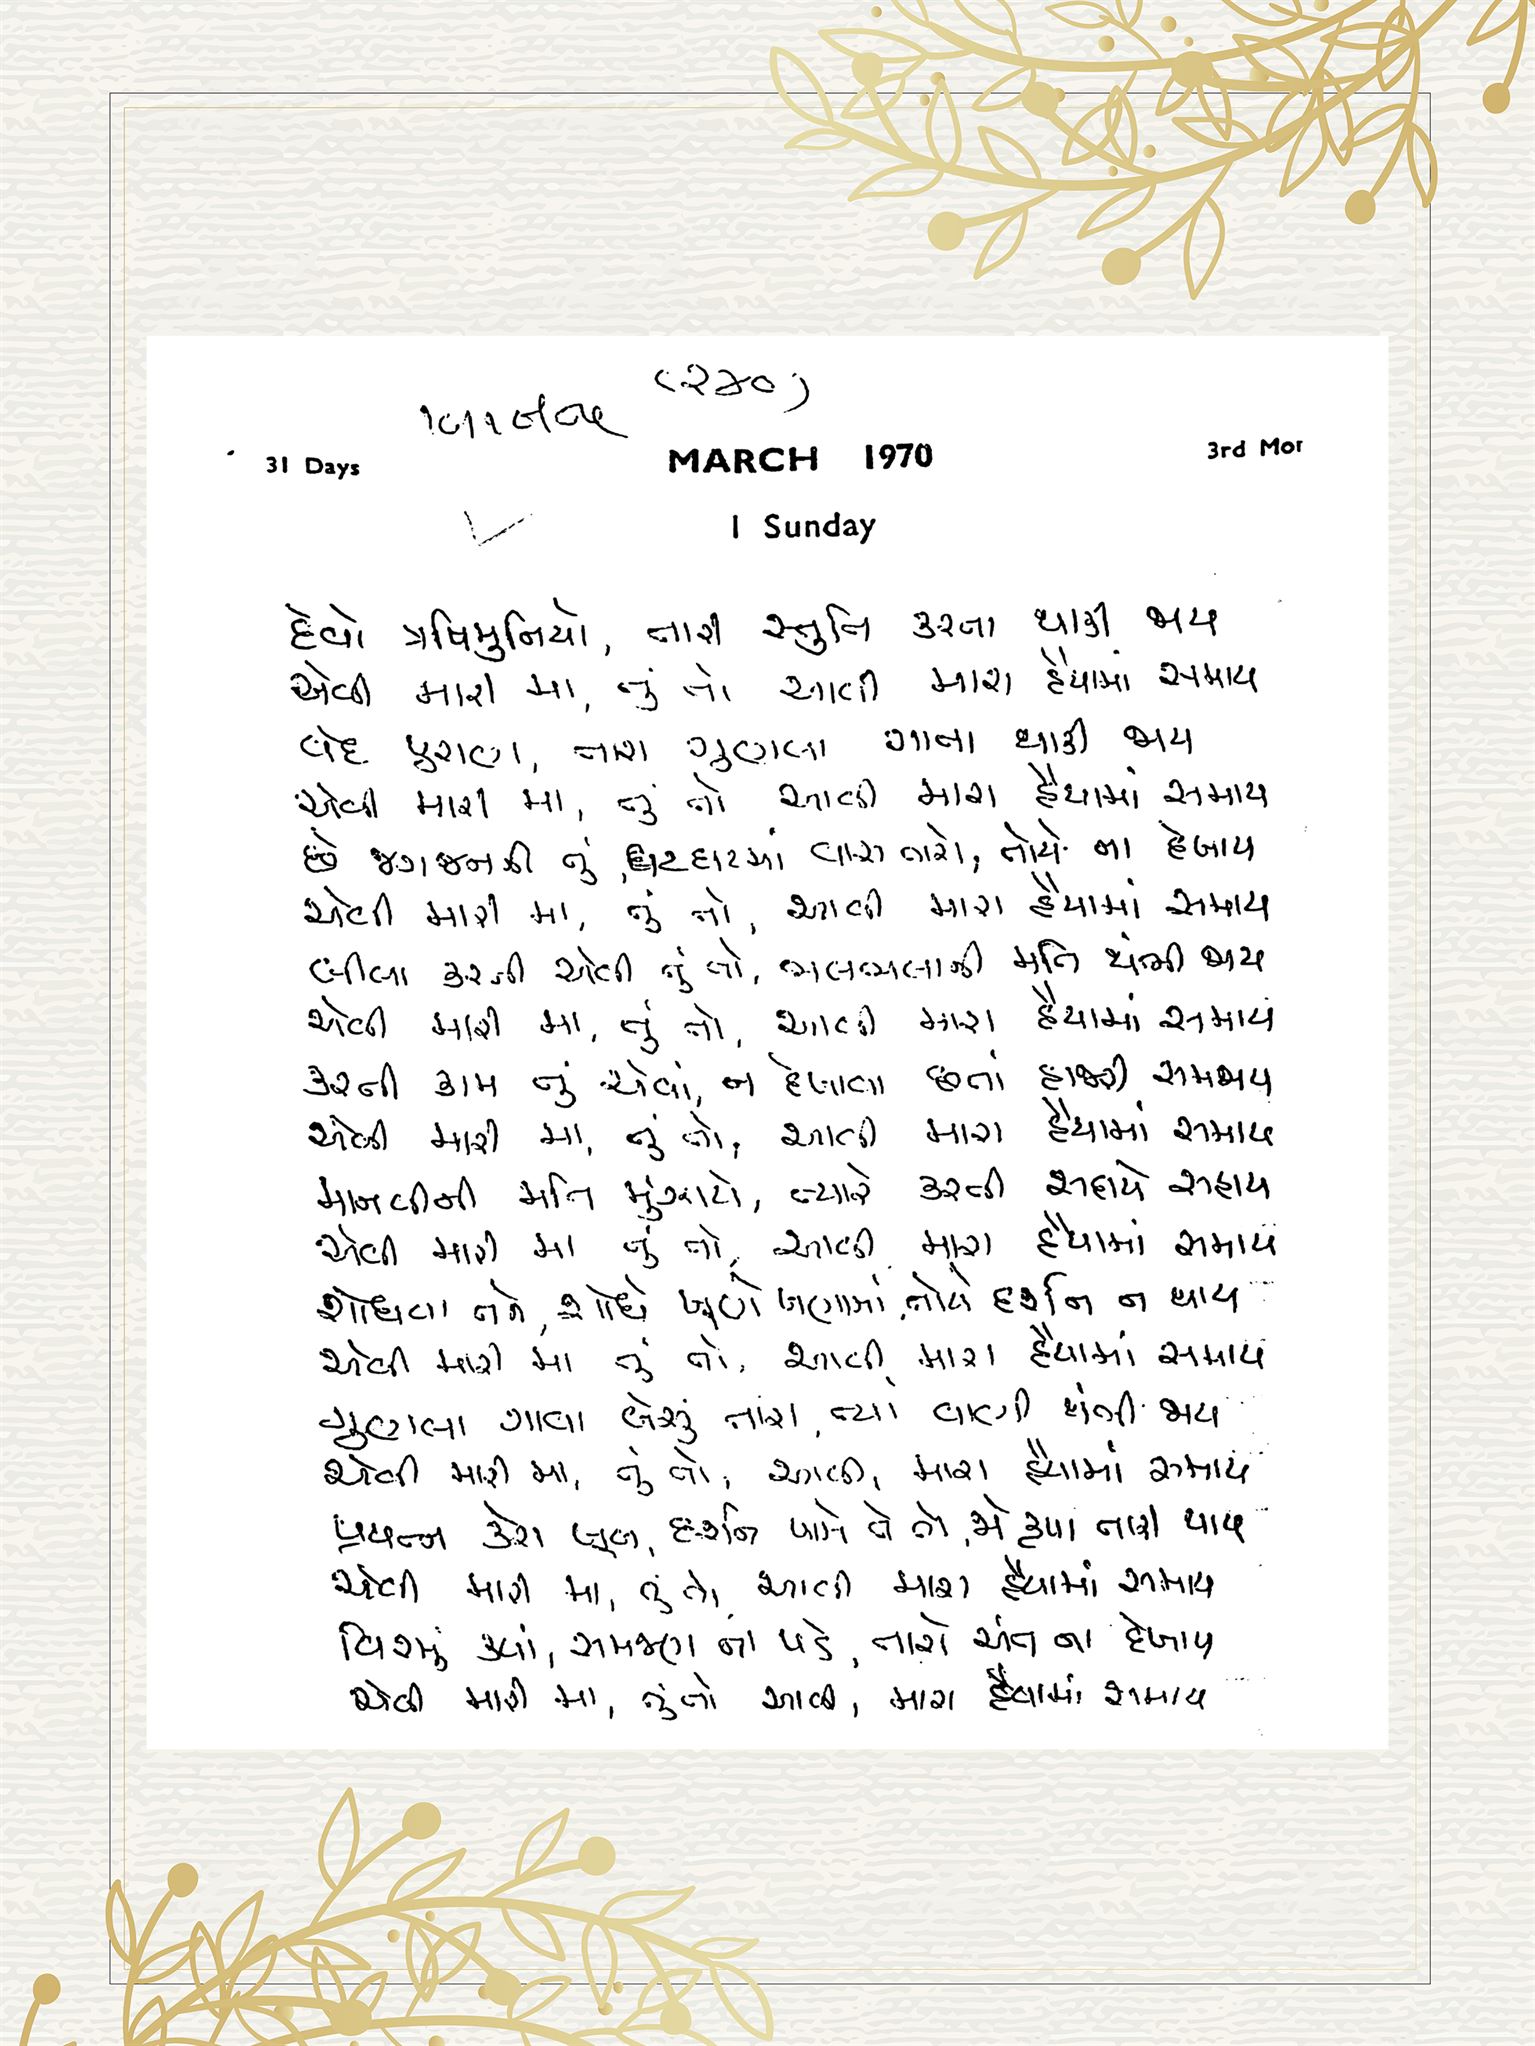 (૨૪૦)
31 Days MARCH 1970 3rd Mor
1 Sunday
દેવો ઋષિમુનિયો, તારી સ્તુતિ કરતા થાકી જાય
એવી મારી મા, તું તો આવી મારા હૈયામાં સમાય
વેદ પુરાણા, તારા ગુણલા ગાતા થાકી જાય
એવી મારી મા, તું તો આવી મારા હૈયામાં સમાય
છે જગજનની તું, ઘટઘટમાં વાસ તારો, તોયે ના દેખાય
એવી મારી મા, તું તો, આવી મારા હૈયામાં સમાય
લીલા કરતી એવી તું તો, ભલભલાની મતિ થંભી જાય
એવી મારી મા, તું તો, આવી મારા હૈયામાં સમાય
કરતી કામ તું એવાં, ન દેખાતા છતાં હાજરી સમજાય
એવી મારી મા, તું તો, આવી મારા હૈયામાં સમાય
માનવીની મતિ મુંઝાયે, ત્યારે કરતી સહાયે સહાય
એવી મારી મા તું તો, આવી મારા હૈયામાં સમાય
શોધવા તને, શોધે ખૂણે ખૂણામાં, તોયે દર્શન ન થાય
એવી મારી મા તું તો, આવી મારા હૈયામાં સમાય
ગુણલા ગાવા બેસું તારા, ત્યાં વાણી થંભી જાય
એવી મારી મા, તું તો, આવી, મારા હૈયામાં સમાય
પ્રયત્ન કરે ખૂબ, દર્શન પામે તે તો, જો કૃપા તારી થાય
એવી મારી મા, તું તો, આવી મારા હૈયામાં સમાય
વિરમું ક્યાં, સમજણ ના પડે, તારો અંત ના દેખાય
એવી મારી મા, તું તો આવી, મારા હૈયામાં સમાય